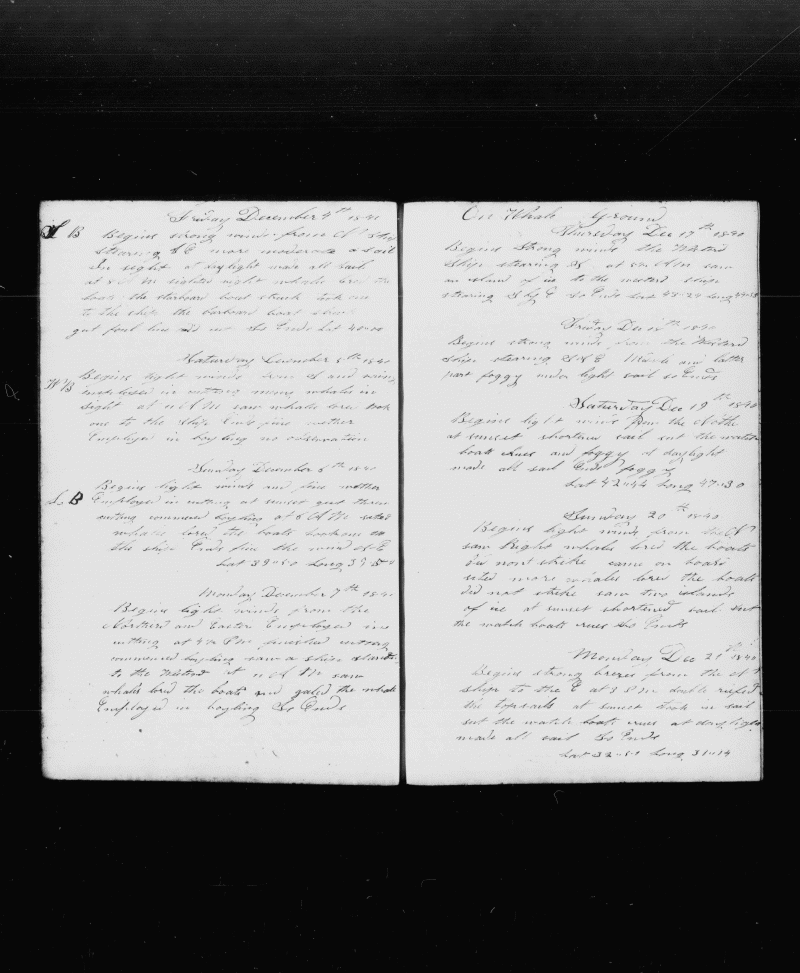 Friday December 4th 1840
S B Begins strong winds from N ship
stearing S E more moderate a sail
In sight at daylight made all sail
at 8 A M sighted right whales lored the
boats the starboard boat struck took one
to the ship the larboard boat struck
got foul line did not So Ends Lat 40-00
Saturday December 5th 1840
W B Begins light winds from and rainy
employed in cutting many whales in
sight at A M saw whales lored took
one to the ship Ends fine wether
Employed in boyling no observation
Sunday December 6th 1840
Begins light winds and fine wether
L B Employed in cutting at sunset got threw
cutting commenced boyling at 6 A M rased
whales lored the boats took one to
the ship Ends fine the wind N E
Lat 39-50 Long 39
Monday December 7th 1840
Begins light winds from the
Northern and Easter Employed in
cutting at 4 P M finished cutting
commenced boyling saw a ship standing
to the Westerd at A M saw
whales lored the boats and galed the whale
Employed in boyling So Ends
On Whale Ground
Thursday Dec 17th 1840
Begins Strong winds the Westerd
Ship stearing S at 8 A M saw
an island of ice to the westerd ship
stearing S by E So Ends Lat 43-29 Long
Friday Dec 18th 1840
Begins strong winds from the Westerd
Ship stearing S S E Middle and latter
part foggy under light sail so Ends
Saturday Dec 19th 1840
Begins light winds from the North
at sunset shortned sail sut the watch
boats crues and foggy at daylight
made all sail Ends foggy
Lat 42-44 Long 47-30
Sunday 20th 1840
Begins light winds from the N
saw Right whales lored the boats
did not strike came on board
rased more whales lored the boats
did not strike saw two islands
of ice at sunset shortened sail sut
the watch boats crues So Ends
Monday Dec 21th 1840
Begins strong brezes from the N
ship to the E at 8 P M double reefed
the topsails at sunset took in sail
sut the watch boats crues at daylight
made all sail So Ends
Lat 32-51 Long 31-14